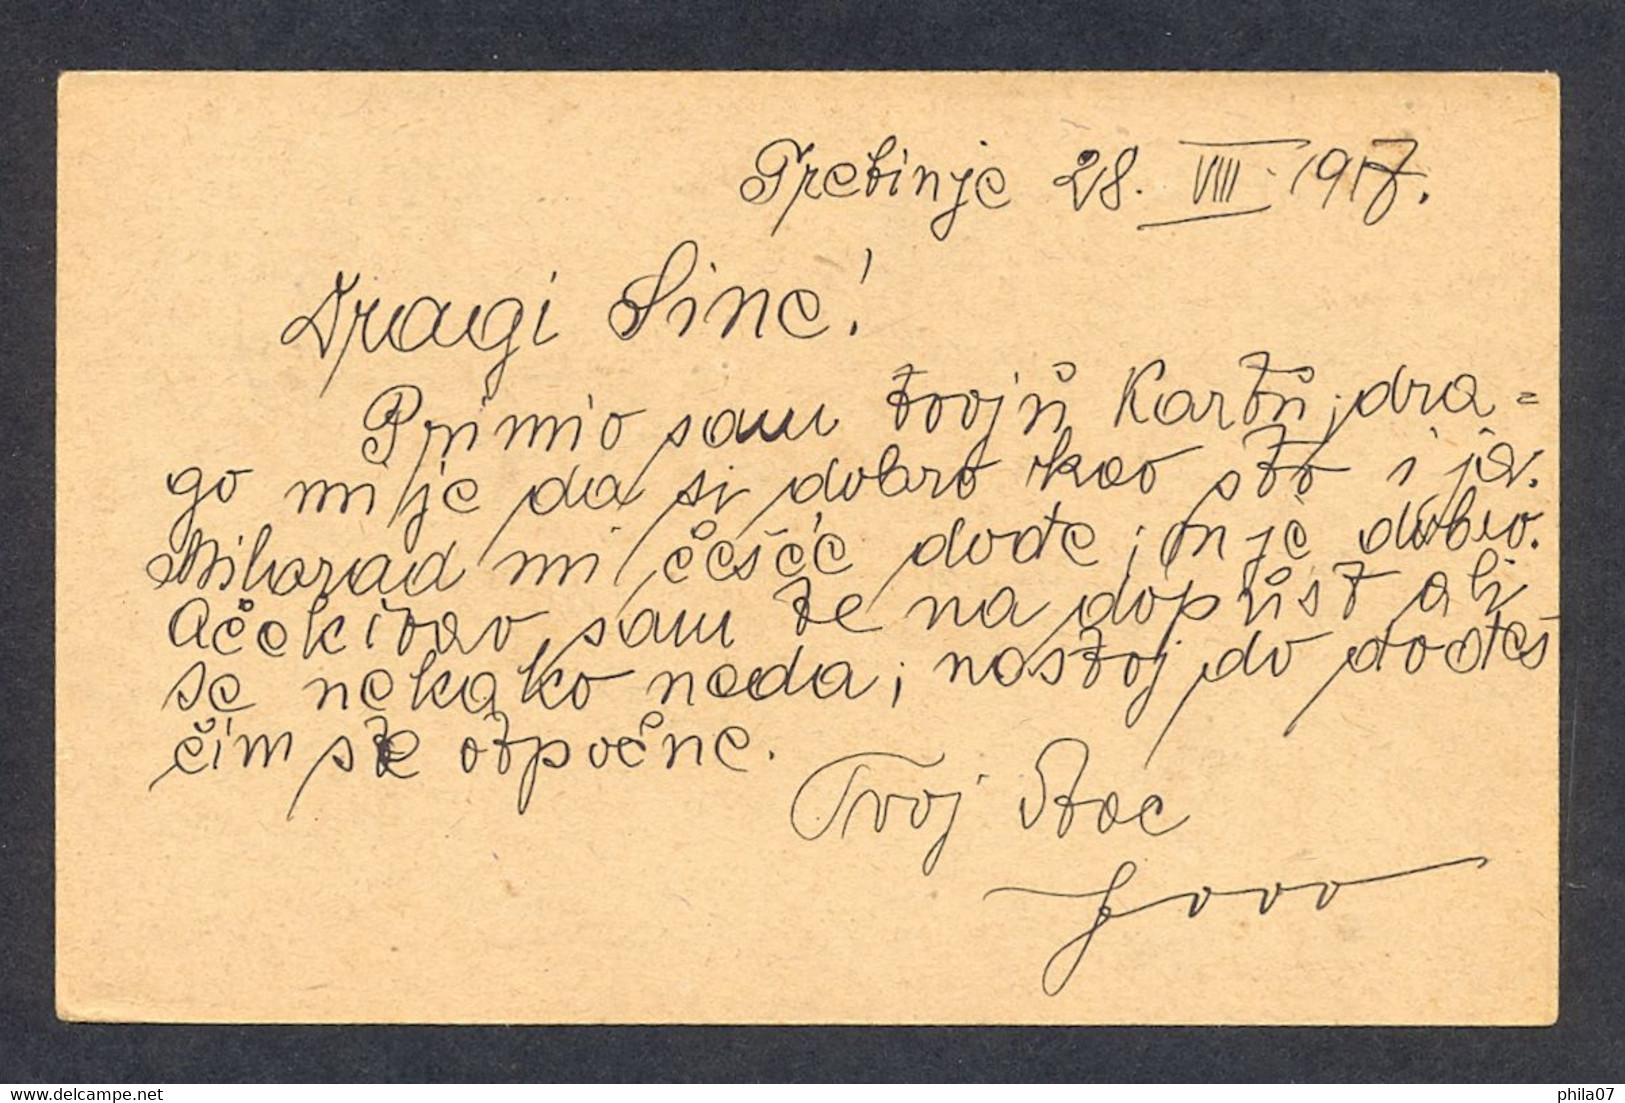 Trebinje 28. VIII. 1917.
Dragi Sine!
Primio sam tvoju kartu, dra=
go mi je da si dobro kao što i ja.
Milorad mi češće dođe, i nje dobio.
Ačekivao sam te na dopust ali
se nekako neda, nastoj da dođeš
čim se otpočne.
Tvoj Otac
Jovo
phila07